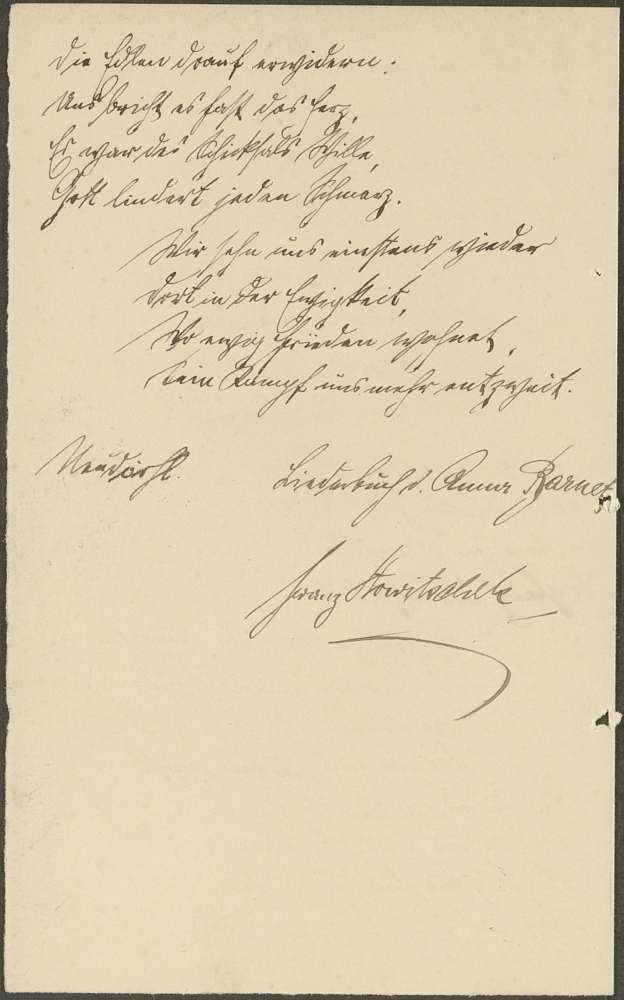 Die Edlen drauf erwidern:
Uns bricht es fast das Herz,
Es war des Schicksals Wille,
Gott lindert jeden Schmerz.
Wir sehn uns einstens wieder
Dort in der Ewigkeit,
Wo ewig Frieden wohnet,
Kein Kampf uns mehr entzweit.
Neudörfl. Liederbuch d. Anna Barnet
Franz